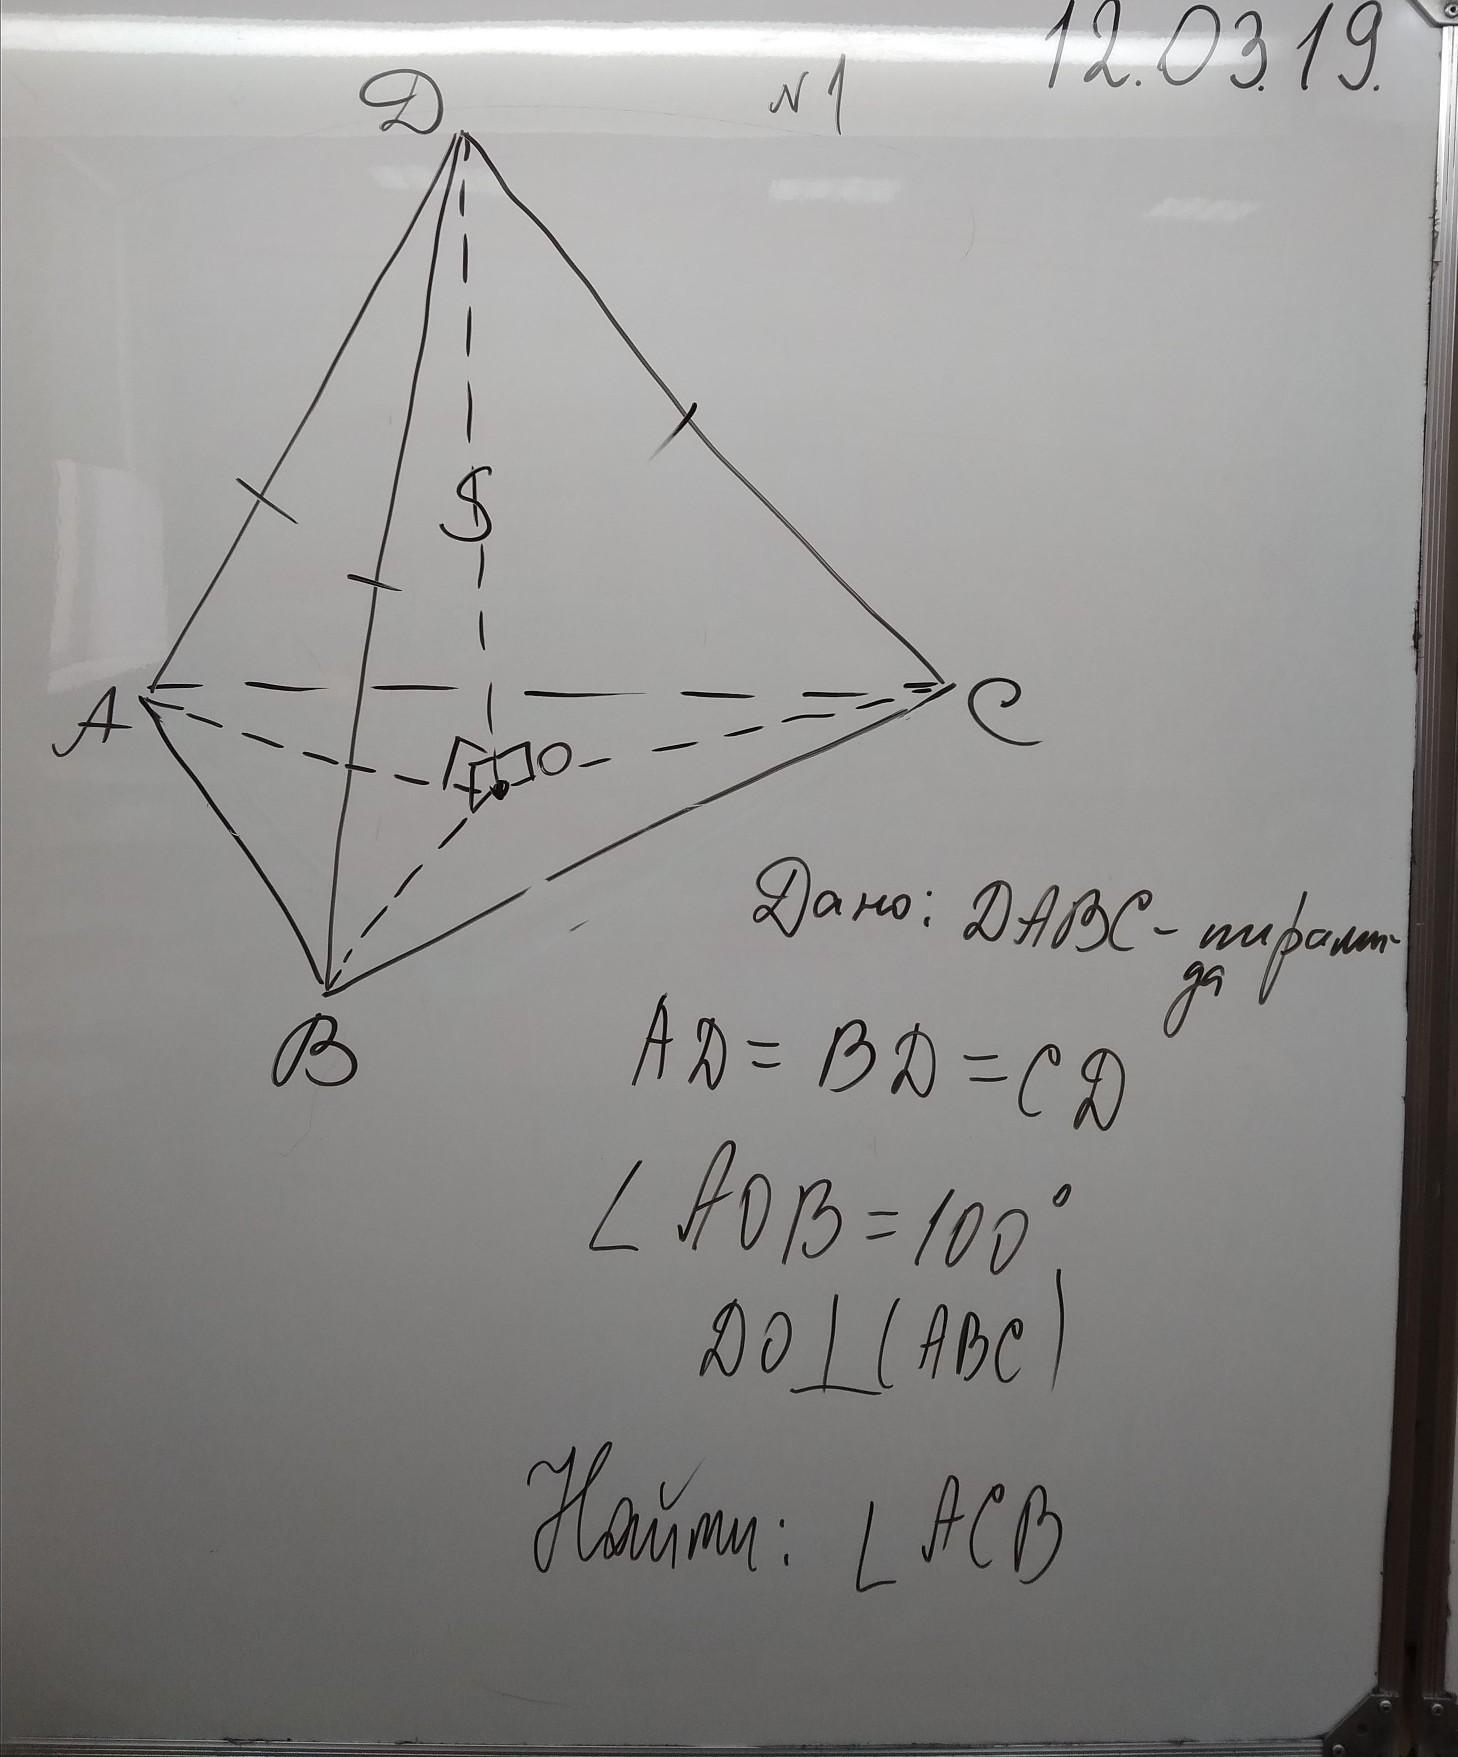 12.03.19.
N1
D
S
A
O
C
B
Дано: DABC - пирами-
да
AD = BD = CD
∠AOB = 100°
DO⊥(ABC)
Найти: ∠ACB